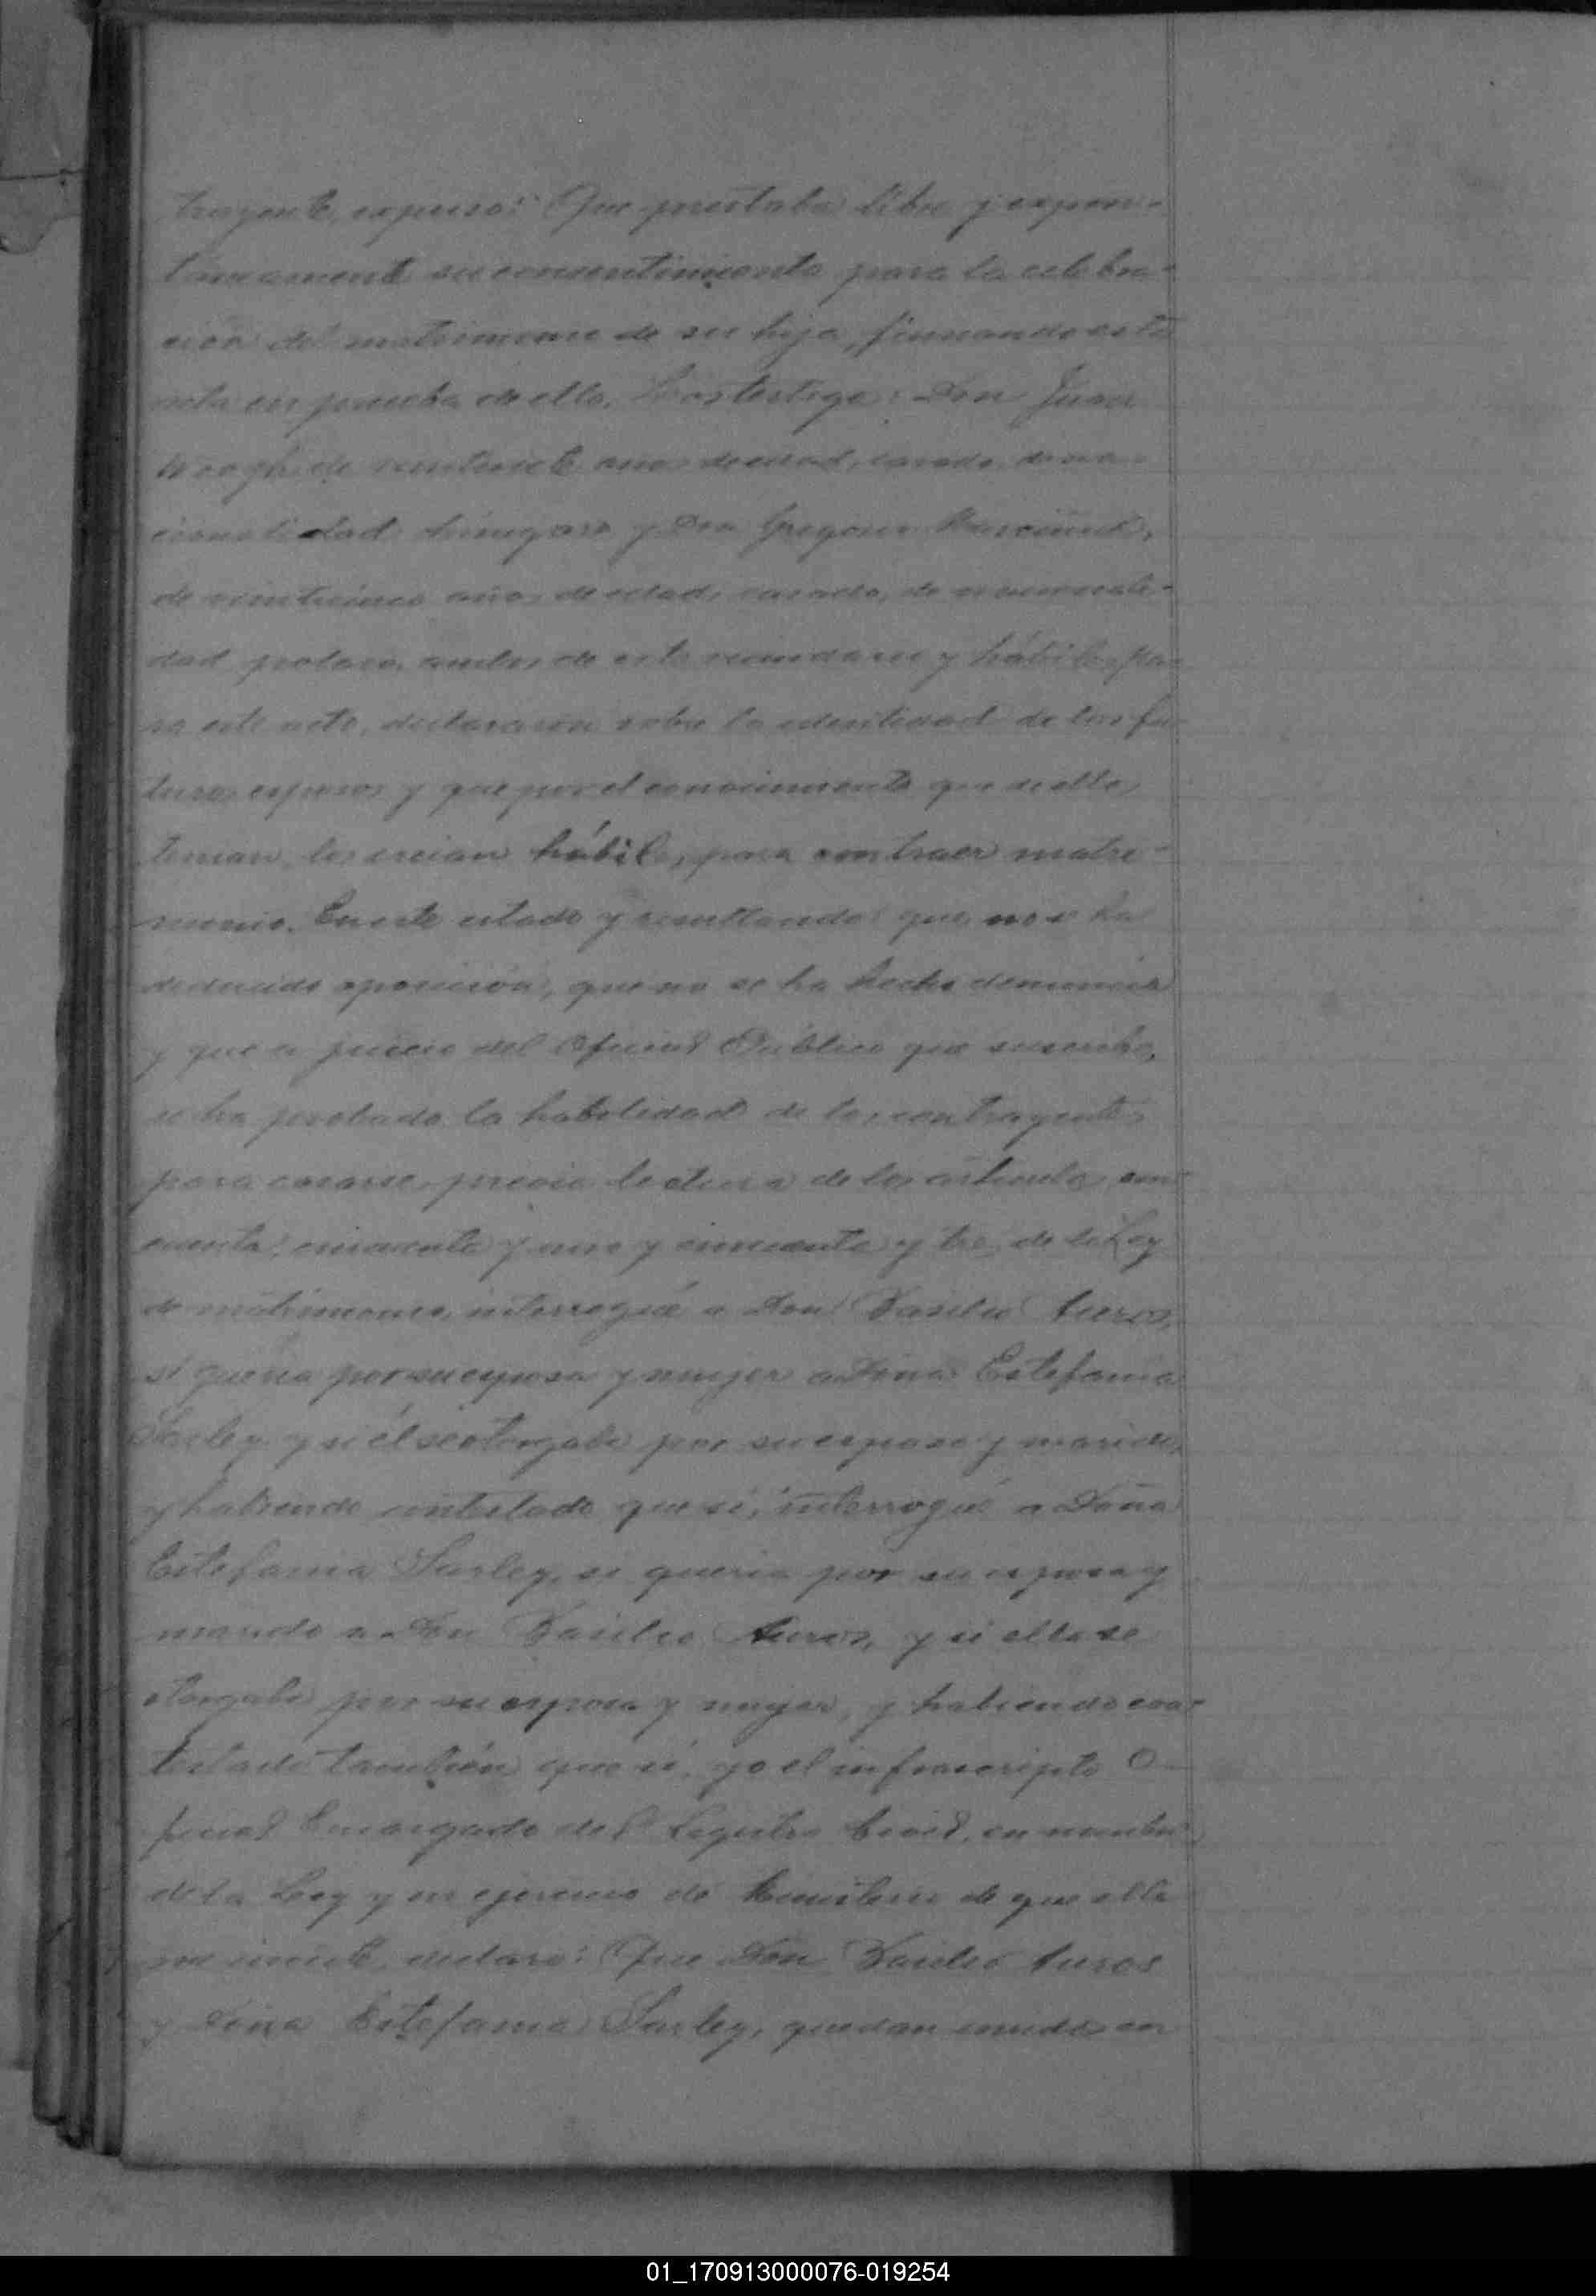 trayente, expuso: Que prestaba libre y expon-
táneamente su consentimiento para la celebra-
ción del matrimonio de su hija, firmando esta
acta en prueba de ello. Los testigos: Don Juan
de veintisiete años de edad, casado, de na-
cionalidad húngaro y Don Gregorio
de veinticinco años de edad, casado, de nacionali-
dad polaco, ambos de este vecindario y hábiles pa-
ra este acto, declararon sobre la identidad de los fu-
turos esposos y que por el conocimiento que de ellos
tenian, los creian hábiles, para contraer matri-
monio. En este estado y resultando: que no se ha
deducido oposición, que no se ha hecho denuncia
y que a juicio del Oficial Público que suscribe,
se ha probado la habilidad de los contrayentes
para casarse, previa lectura de los artículos cin-
cuenta, cincuenta y uno y cincuenta y tres de la Ley
de matrimonio, interrogué a Don Basilio
si queria por su esposa y mujer a Doña Estefania
Sarley y si él se otorgaba por su esposo y marido,
y habiendo contestado que sí, interrogué a Doña
Estefania Sarley, si queria por su esposo y
marido a Don Basilio y si ella se
otorgaba por su esposa y mujer, y habiendo con-
testado también que sí, yo el infrascripto O-
ficial Encargado del Registro Civil, en nombre
de la Ley y en ejercicio de ministerio de que ella
me inviste, declaro: Que Don Basilio
y Doña Estefania Sarley, quedan unidos en
01_170913000076-019254